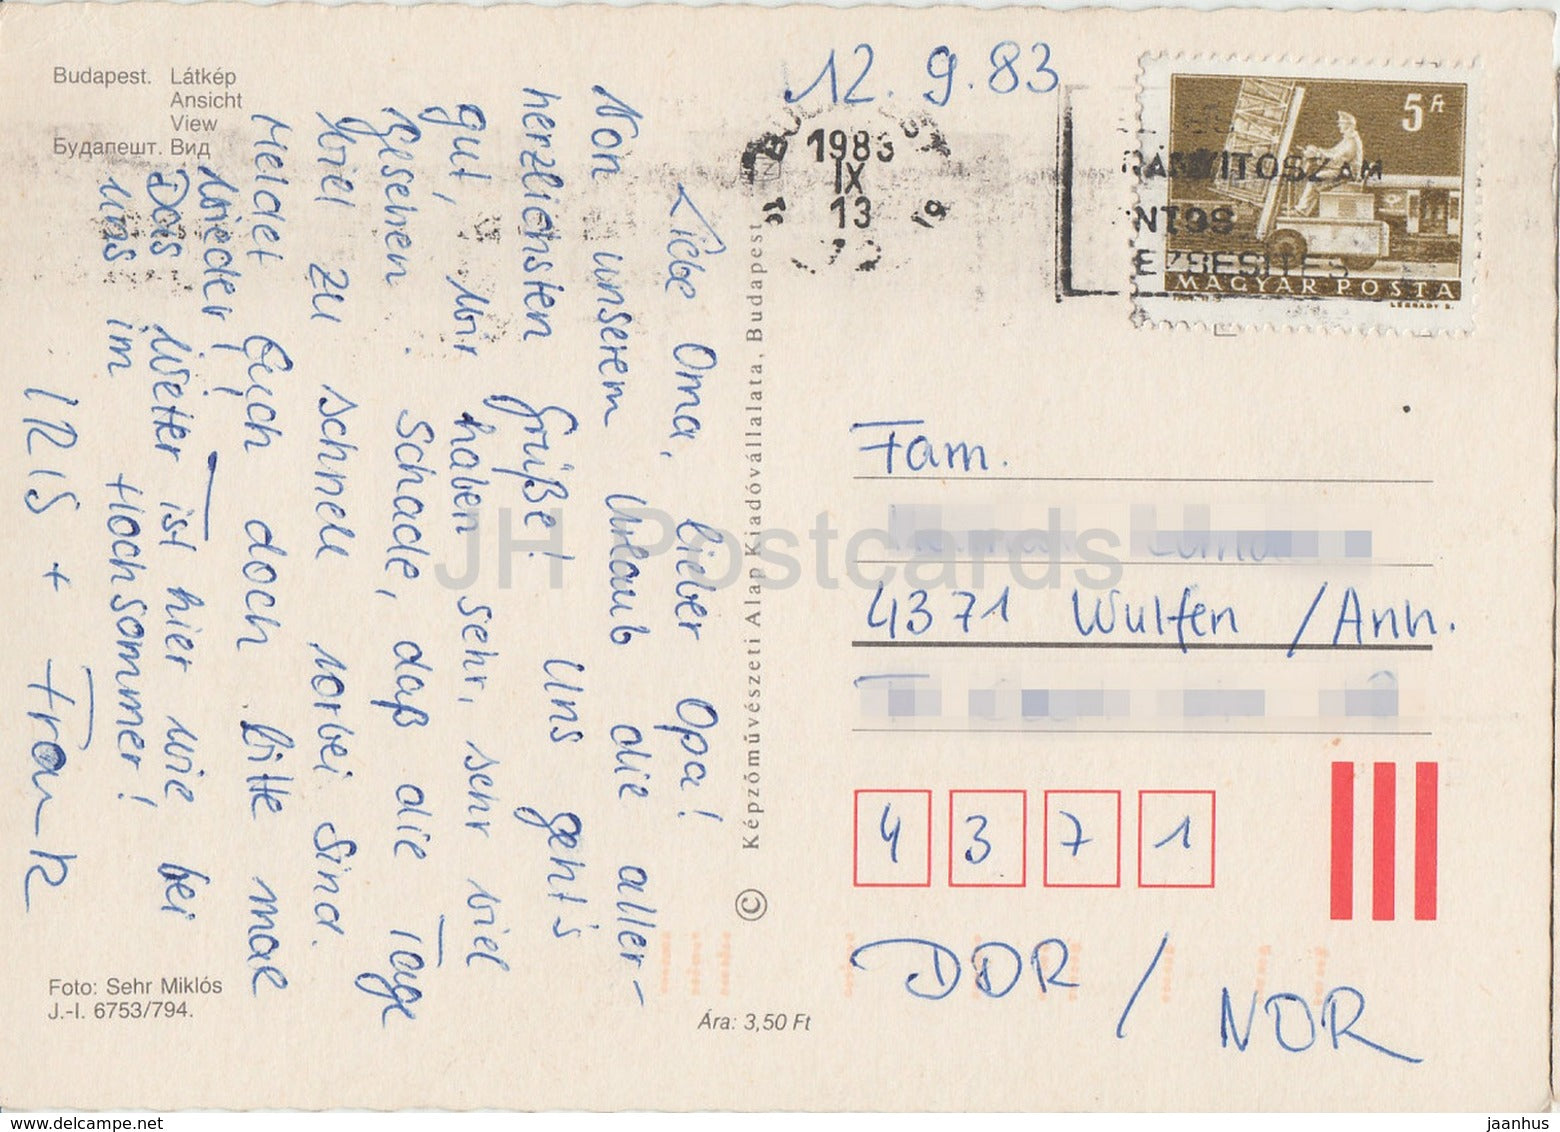 Budapest. Látkép
Ansicht
View
Будапешт. Вид
12.9.83
1983
IX
13
5 Ft
MAGYAR POSTA
LÉGRÁDY S.
RÁNYÍTÓSZÁM
NTOS
Liebe Oma, lieber Opa!
Von unserem Urlaub die aller-
herzlichsten Grüße! Uns geht's
gut, wir haben sehr, sehr viel
gesehen. Schade, daß die Tage
viel zu schnell vorbei sind.
Meldet Euch doch bitte mal
wieder!
Das Wetter ist hier wie bei
uns im Hochsommer!
IRIS + Frank
© Képzőművészeti Alap Kiadóvállalata, Budapest
Fam.
4371 Wulfen / Anh.
4 3 7 1
DDR / NDR
Foto: Sehr Miklós
J.-I. 6753/794.
Ára: 3,50 Ft
JH Postcards
www.delcampe.net
jaanhus